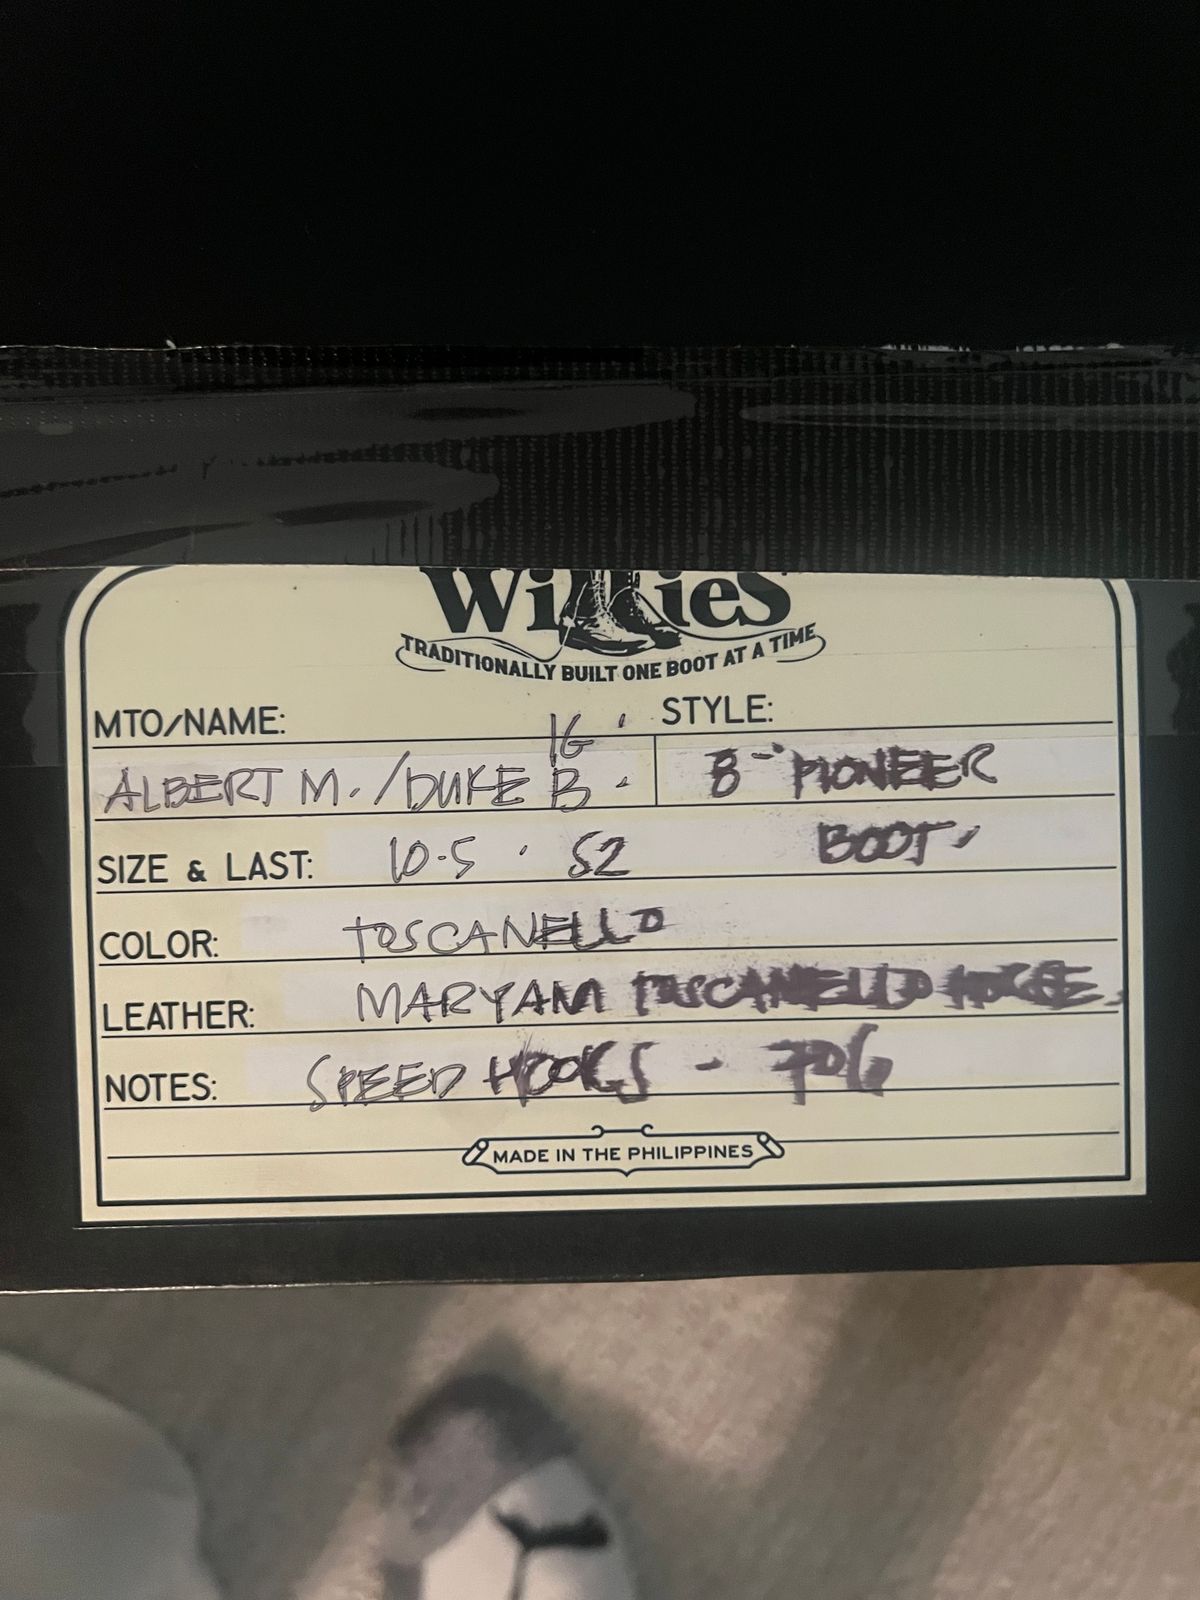 Willies
TRADITIONALLY BUILT ONE BOOT AT A TIME
MTO/NAME: IG STYLE:
ALBERT M. / DUKE B. 8" PIONEER
BOOT.
SIZE & LAST: 10.5 . S2
COLOR: TOSCANELLO
LEATHER: MARYAM TOSCANELLO HORSE.
NOTES: SPEED HOOKS -
MADE IN THE PHILIPPINES